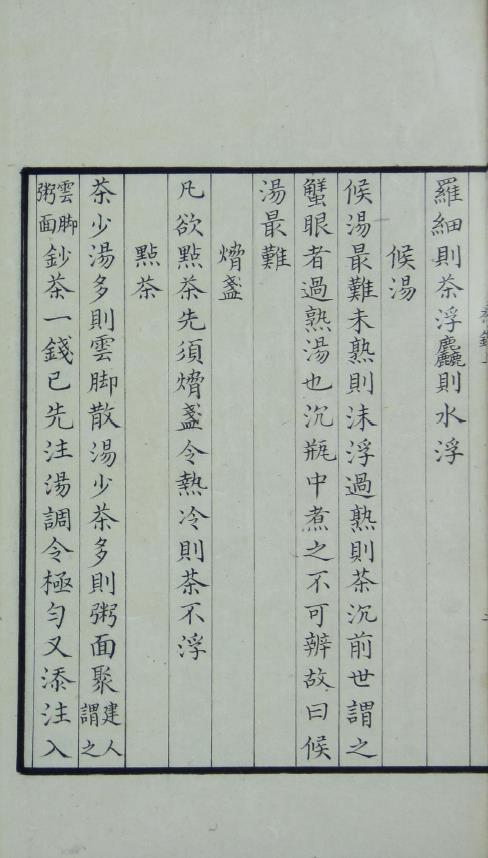 羅細則茶浮麤則水浮
候湯
候湯最難未熟則沫浮過熟則茶沉前世謂之
蟹眼者過熟湯也沉瓶中煮之不可辨故曰候
湯最難
熁盞
凡欲點茶先須熁盞令熱冷則茶不浮
點茶
茶少湯多則雲脚散湯少茶多則粥面聚建人謂之
雲脚粥面鈔茶一錢已先注湯調令極匀又添注入